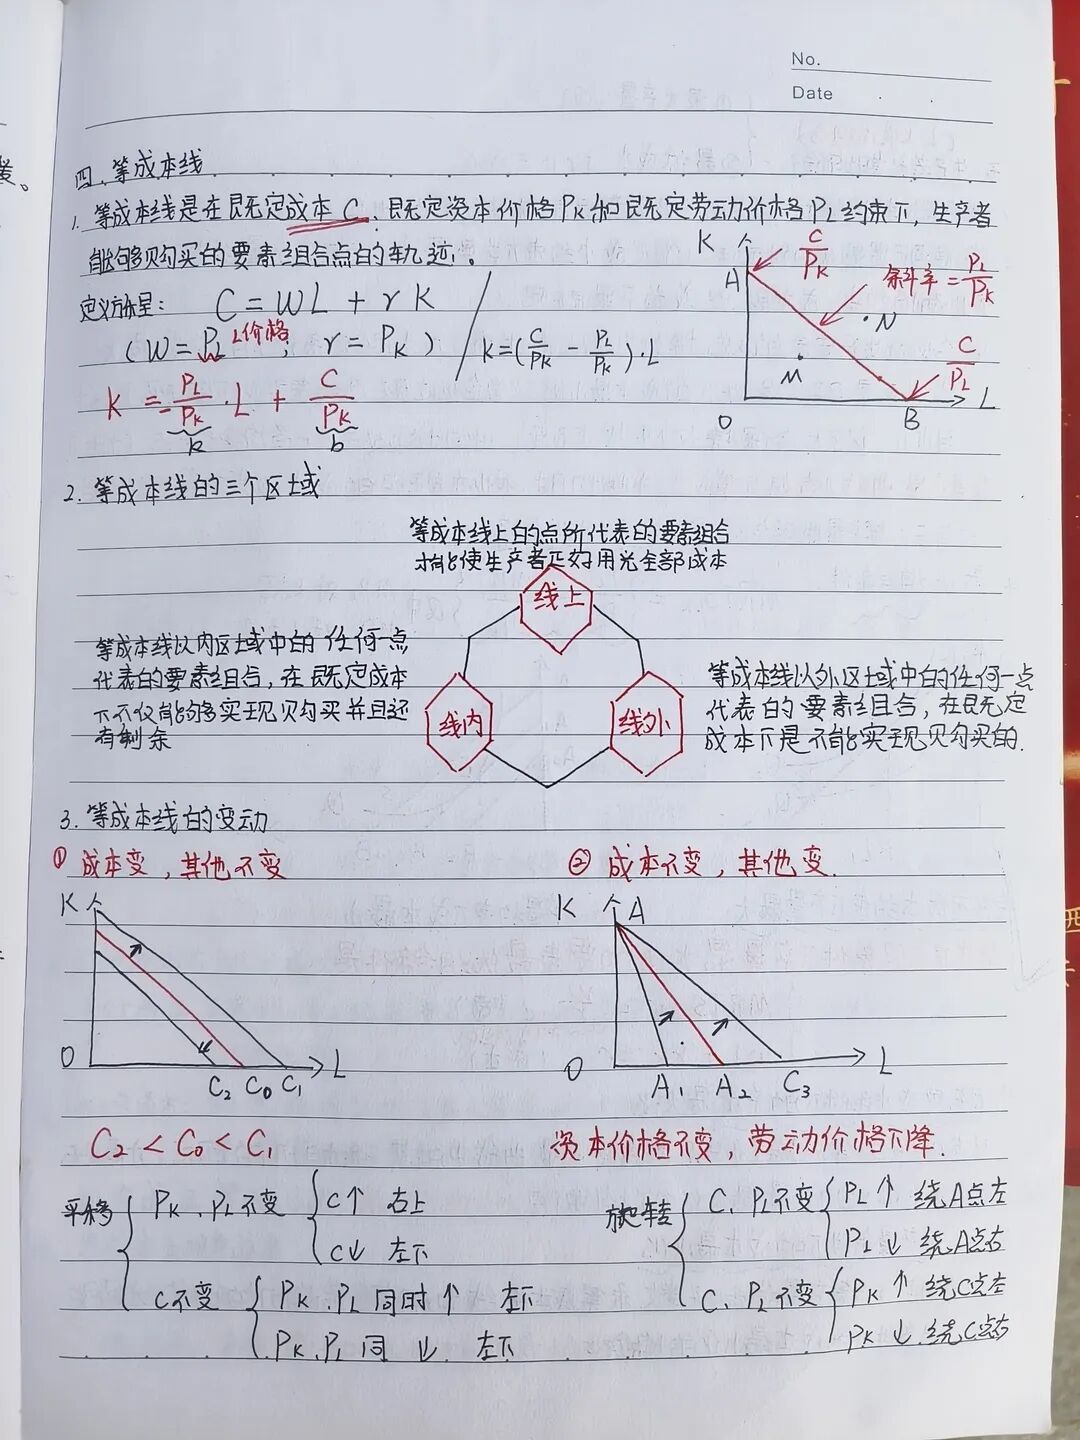 No.
Date
四、等成本线
1. 等成本线是在既定成本 C、既定资本价格PK和既定劳动价格PL约束下，生产者
能够购买的要素组合点的轨迹。
定义方程： C = WL + rK
(W = PL L价格; r = PK) / k=(C/PK - PL/PK)·L
K = -PL/PK·L + C/PK
k b
K A C/PK 斜率=PL/PK
·N
M C/PL
O B L
2. 等成本线的三个区域
等成本线上的点所代表的要素组合
才能使生产者正好用光全部成本
线上
等成本线以内区域中的任何一点
代表的要素组合，在既定成本
下不仅能够实现购买并且还
有剩余
线内
线外
等成本线以外区域中的任何一点
代表的要素组合，在既定
成本下是不能实现购买的.
3. 等成本线的变动
① 成本变，其他不变
② 成本不变，其他变.
K
O C2 C0 C1 L
K A
O A1 A2 C3 L
C2 < C0 < C1
资本价格不变，劳动价格下降.
平移 PK、PL不变 C↑ 右上
C↓ 左下
C不变 PK、PL同时↑ 左下
PK、PL同 ↓ 左下
旋转 C、PL不变 PL↑ 绕A点左
PL↓ 绕A点右
C、PL不变 PK↑ 绕C点左
PK↓ 绕C点右